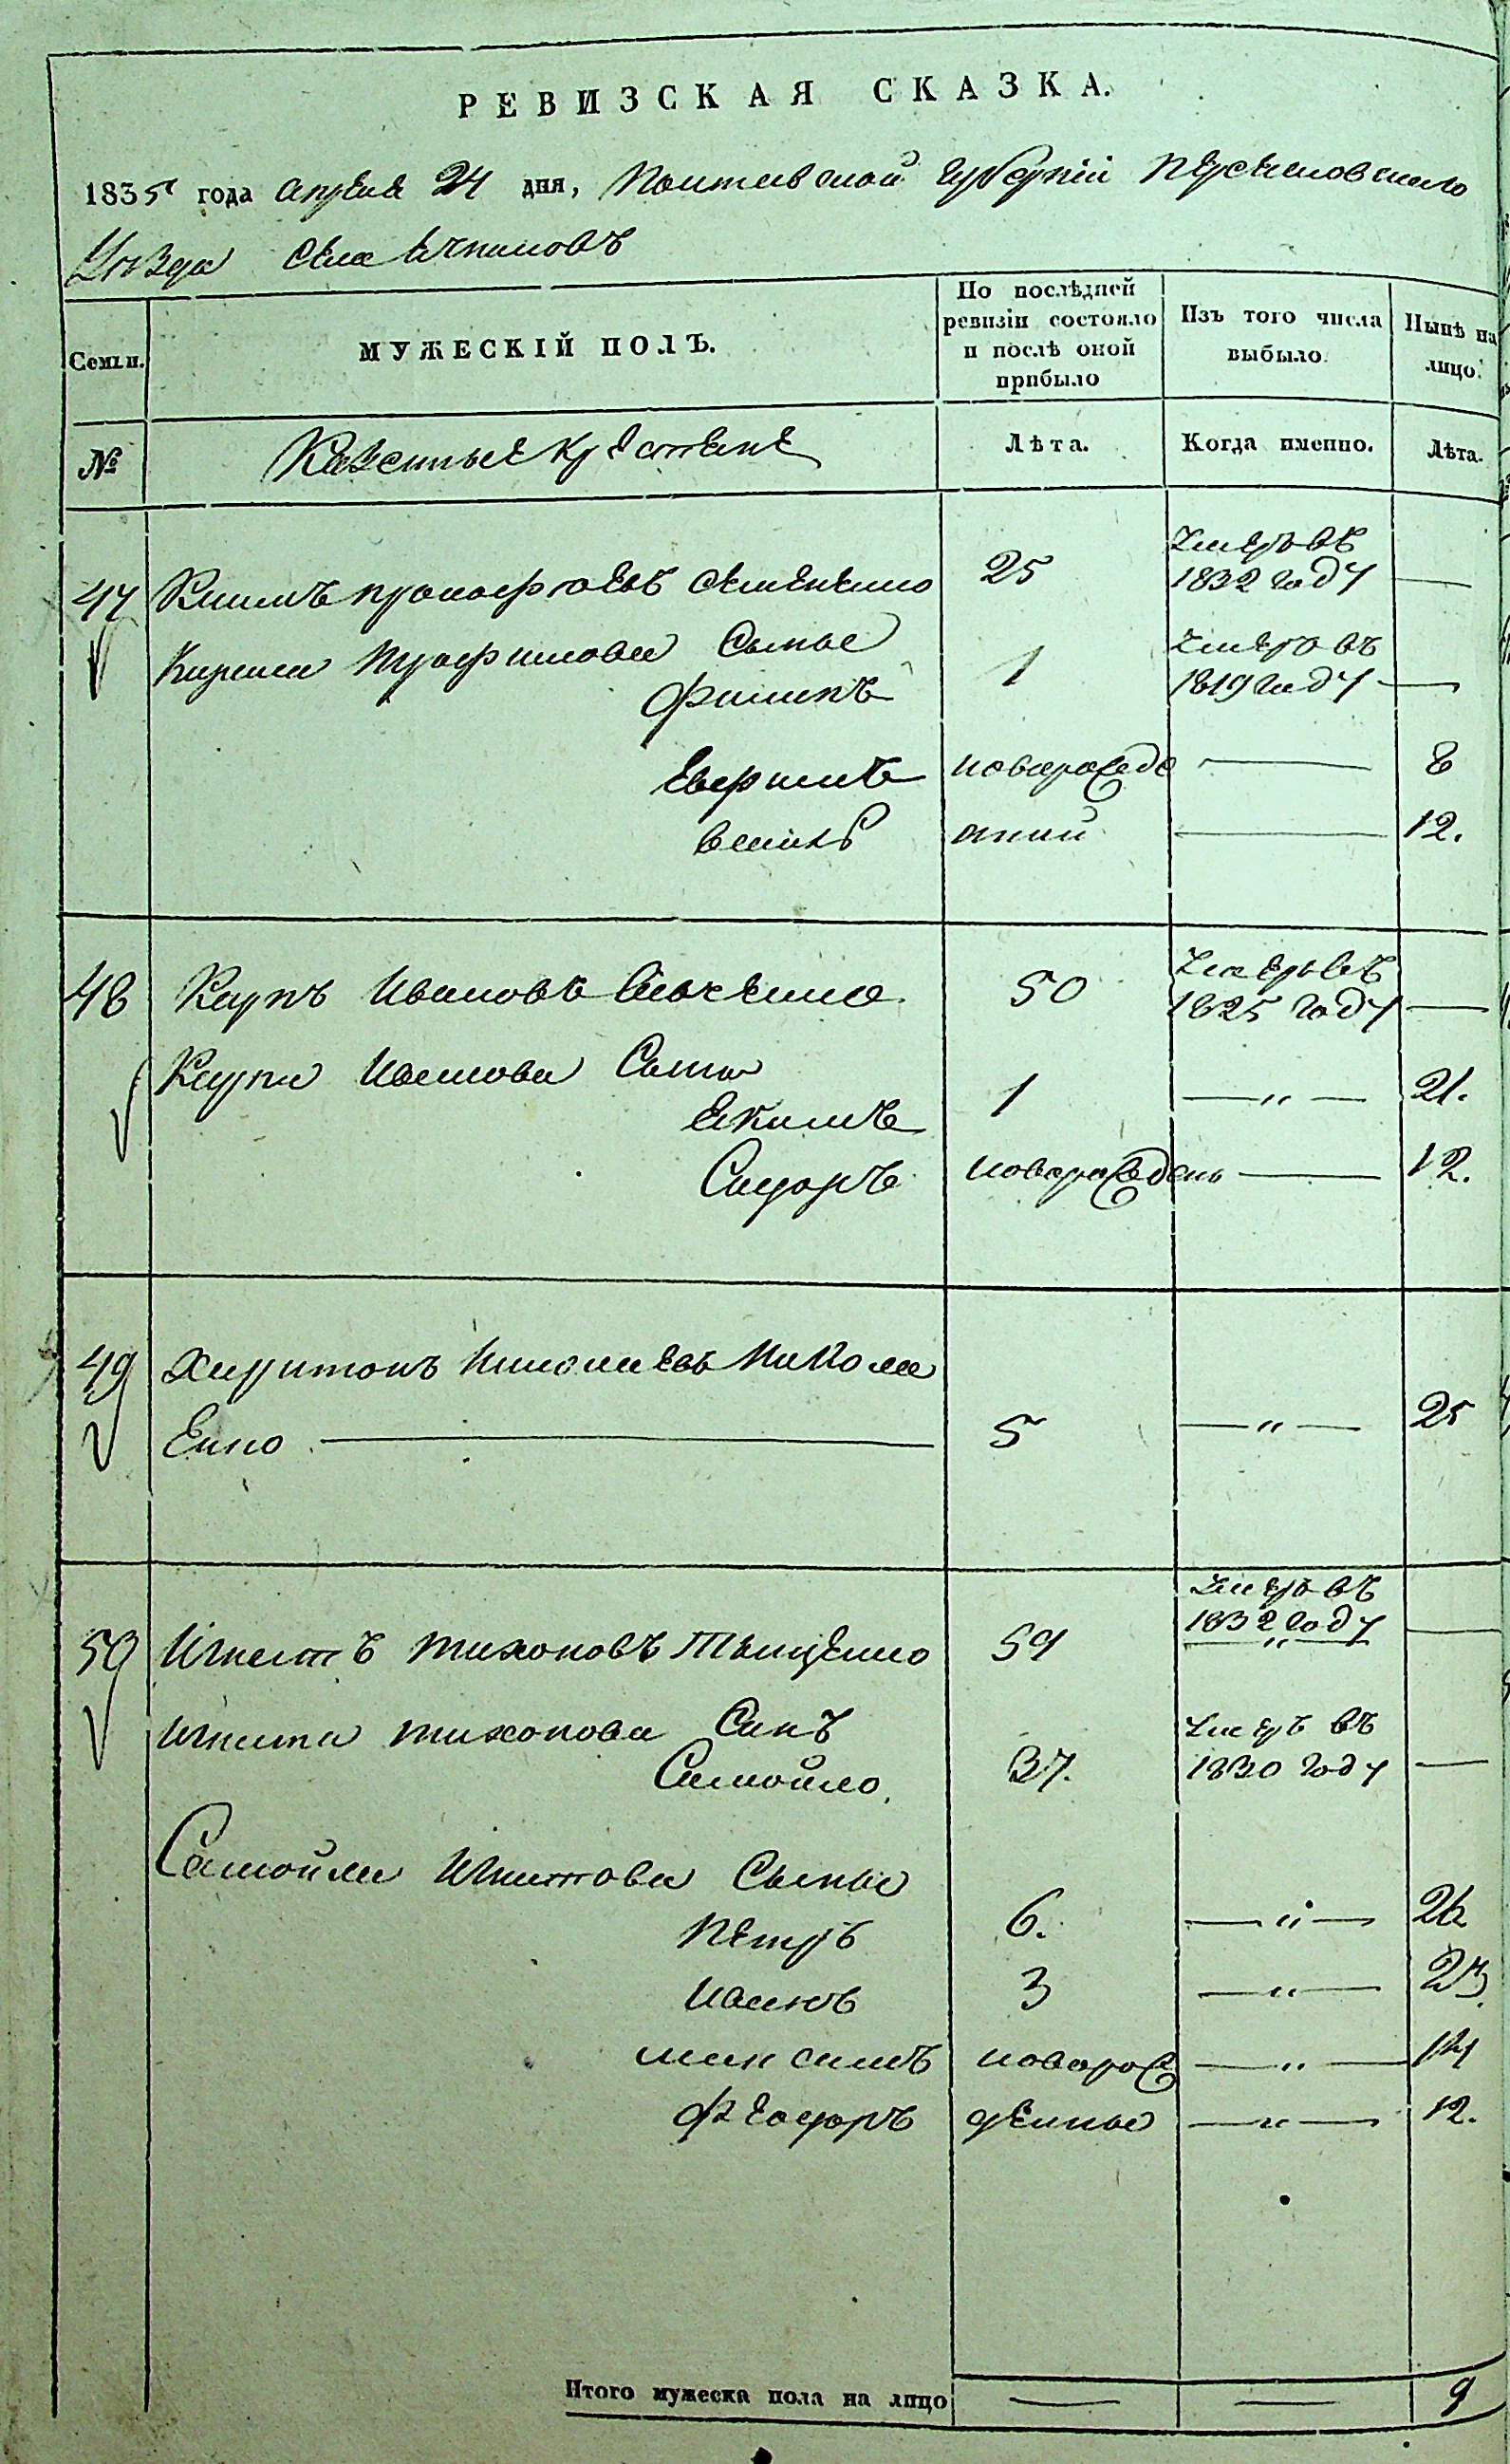 РЕВИЗСКАЯ СКАЗКА.
1835 года апреля 24 дня, Полтавской губернiи
уѣзда села
Семьи.
МУЖЕСКIЙ ПОЛЪ.
По послѣдней ревизiи состояло и послѣ оной прибыло
Изъ того числа выбыло.
Нынѣ на лицо.
№
Казенные крестяне
Лѣта.
Когда именно.
Лѣта.
47
25
умеръ въ
1832 году —
сыны
Филипъ 1 умеръ въ
1819 году —
новорожде — 8
нний — 12.
48 Карпъ Ивановъ 50 умеръ въ
1825 году —
Карпа Иванова сыны
Екимъ 1 — „ — 21.
Сыдоръ новорожденъ — 12.
49 Харитонъ НиколаевъНикола
Енко — 5 — „ — 25
50 Игнатъ Тихоновъ Тыщенко 59 умеръ въ
1832 году —
Игната Тихонова Синъ
Самойло. 37. умеръ въ
1830 году —
Самойла Игнатова Сыны
Петръ 6. — „ — 26
Иванъ 3 — „ — 23.
максимъ новорож — „ — 14
Феодоръ денные — „ — 12.
Итого мужеска пола на лицо — — 9